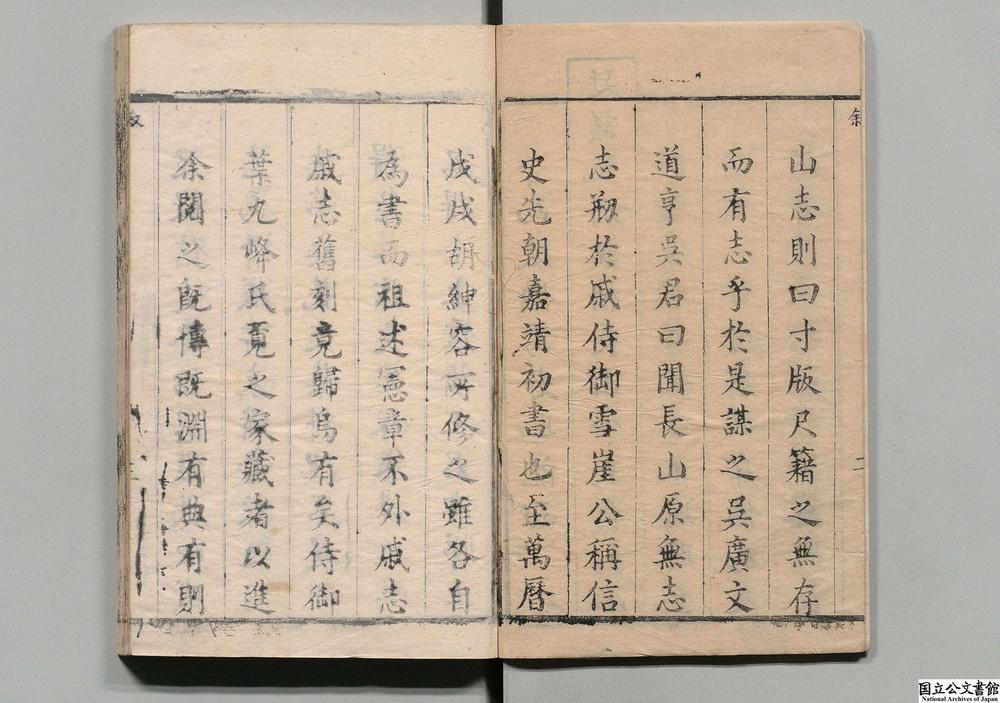 山志則曰寸版尺籍之無存
而有志乎於是謀之吳廣文
道亨吳君曰聞長山原無志
志剏於戚侍御雪崖公稱信
史先朝嘉靖初書也至萬曆
戊戌胡紳容所修之雖各自
為書而祖述憲章不外戚志
戚志舊刻竟歸烏有矣侍御
葉九峰氏覔之家藏者以進
余閱之旣博旣淵有典有則
叙
二
國立公文書館
National Archives of Japan